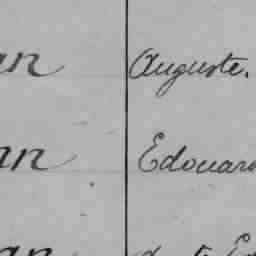 an Auguste.
an Edouard
an